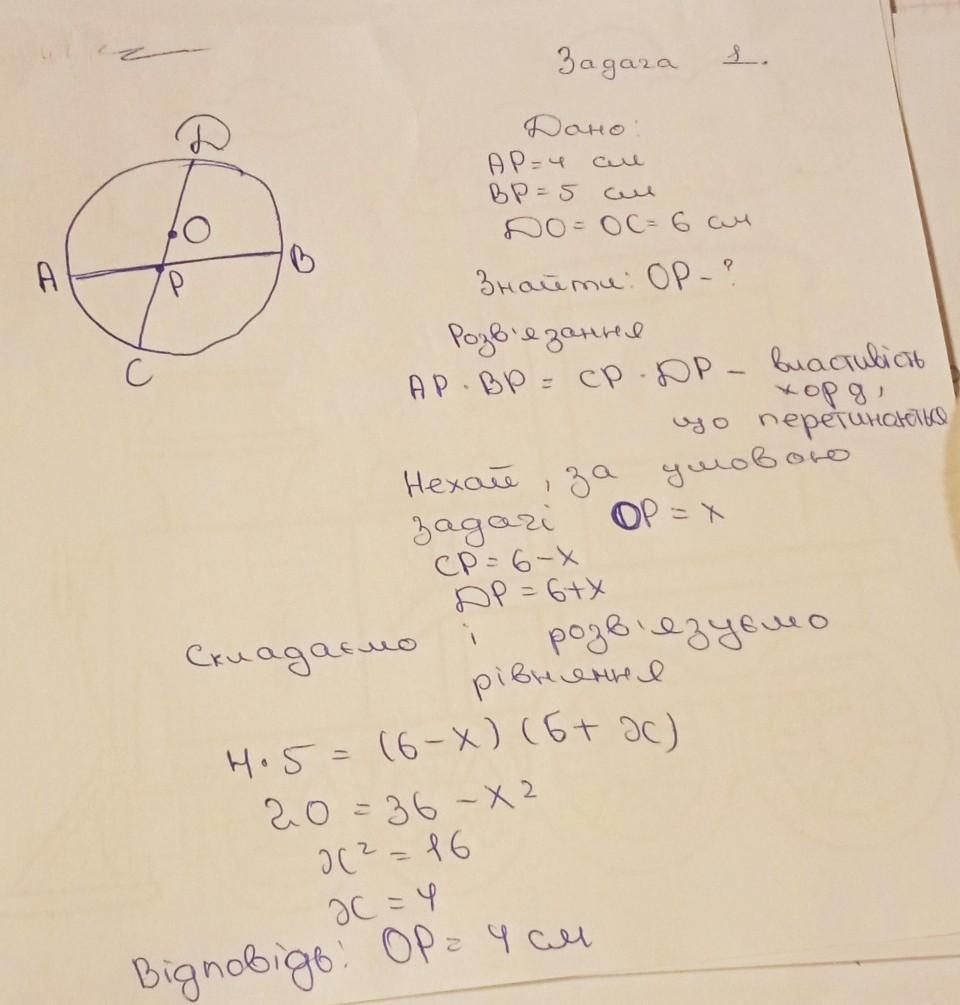 Задача 1.
Д
O
A
B
P
C
Дано:
AP=4 см
BP=5 см
ДO=OC=6 см
Знайти: OP-?
Розв'язання
AP·BP=CP·ДP- властивість
хорд,
що перетинаються
Нехай, за умовою
задачі OP=x
CP=6-x
ДP=6+x
Складаємо і розв'язуємо
рівняння
4·5=(6-x)(6+x)
20=36-x²
x²=16
x=4
Відповідь: OP=4 см